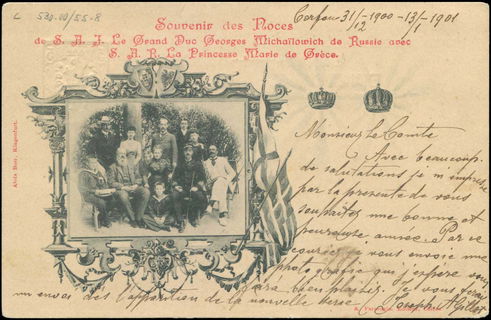 c 530.00/55-8
Corfou 31/12 - 1900 - 13/1 - 1901
Souvenir des Noces
de S. A. I. Le Grand Duc Georges Michaïlowich de Russie avec
S. A. R. La Princesse Marie de Grèce.
Monsieur le Comte
Avec beaucoup
de salutations je m'empresse
par la presente de vous
souhaiter une bonne et
heureuse année. Par ce
courrier je vous envoie une
photografie que j'espère vous
fera bien plaisir. Je vous ferai
un envoi des l'apparition de la nouvelle
Joseph
Alois Beer, Klagenfurt.